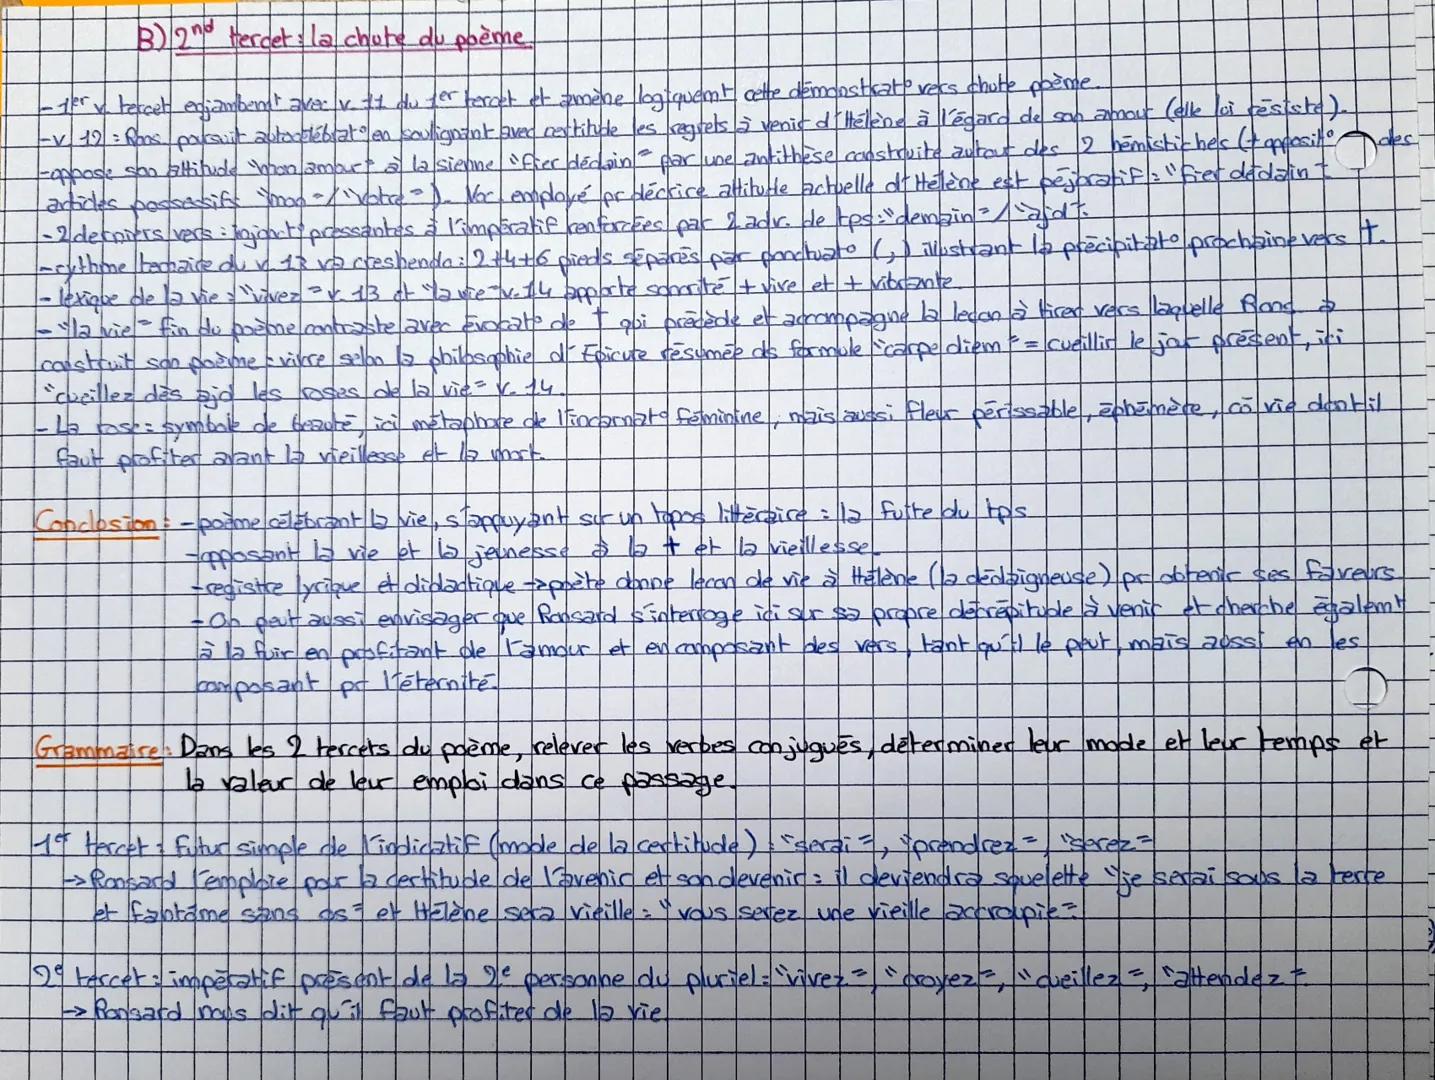 B) 2nd tercet : la chute du poème
- 1er v. tercet enjambemt avec v. 11 du 1er tercet et amène logiquemt cette démonstrato vers chute poème.
- v. 12 : Rons poursuit autocélébrato en soulignant avec certitude les regrets à venir d'Hélène à l'égard de son amour (elle lui résiste).
- oppose son attitude "mon amour" à la sienne "fier dédain" par une antithèse construite autour des 2 hémistiches (+ oppositº des
articles possessifs "mon" / "votre"). Voc employé pr décrire attitude actuelle d'Hélène est péjoratif : "fier dédain".
- 2 derniers vers : injonctº pressantes à l'impératif renforcées par 2 adv. de tps : "demain" / "ajd".
- rythme ternaire du v. 13 va creshendo : 2+4+6 pieds séparés par ponctuato (,) illustrant la précipitato prochaine vers †.
- lexique de la vie : "vivez" v. 13 et "la vie" v. 14 apporte sonorité + vive et + vibrante.
- "la vie" fin du poème contraste avec évocato de † qui précède et accompagne la leçon à tirer vers laquelle Rons a
construit son poème : vivre selon la philosophie d'Epicure résumée ds formule "carpe diem" = cueillir le jour présent, ici
"cueillez dès ajd les roses de la vie" v. 14.
- La rose : symbole de beauté, ici métaphore de l'incarnato féminine, mais aussi fleur périssable, éphémère, cô vie dont il
faut profiter avant la vieillesse et la mort.
Conclusion : - poème célébrant la vie, s'appuyant sur un topos littéraire : la fuite du tps
- opposant la vie et la jeunesse à la † et la vieillesse.
- registre lyrique et didactique → poète donne lecon de vie à Hélène (la dédaigneuse) pr obtenir ses faveurs
- On peut aussi envisager que Ronsard s'interroge ici sur sa propre décrépitude à venir et cherche égalemt
à la fuir en profitant de l'amour et en composant des vers, tant qu'il le peut, mais aussi en les
composant pr l'éternité.
Grammaire : Dans les 2 tercets du poème, relever les verbes conjugués, déterminer leur mode et leur temps et
la valeur de leur emploi dans ce passage.
1er tercet : futur simple de l'indicatif (mode de la certitude) : "serai", "prendrez", "serez"
→ Ronsard l'emploie pour la certitude de l'avenir et son devenir : il deviendra squelette "je serai sous la terre
et fantôme sans os" et Hélène sera vieille : "vous serez une vieille accroupie"
2e tercet : impératif présent de la 2e personne du pluriel : "vivez", "croyez", "cueillez", "attendez".
→ Ronsard nous dit qu'il faut profiter de la vie.